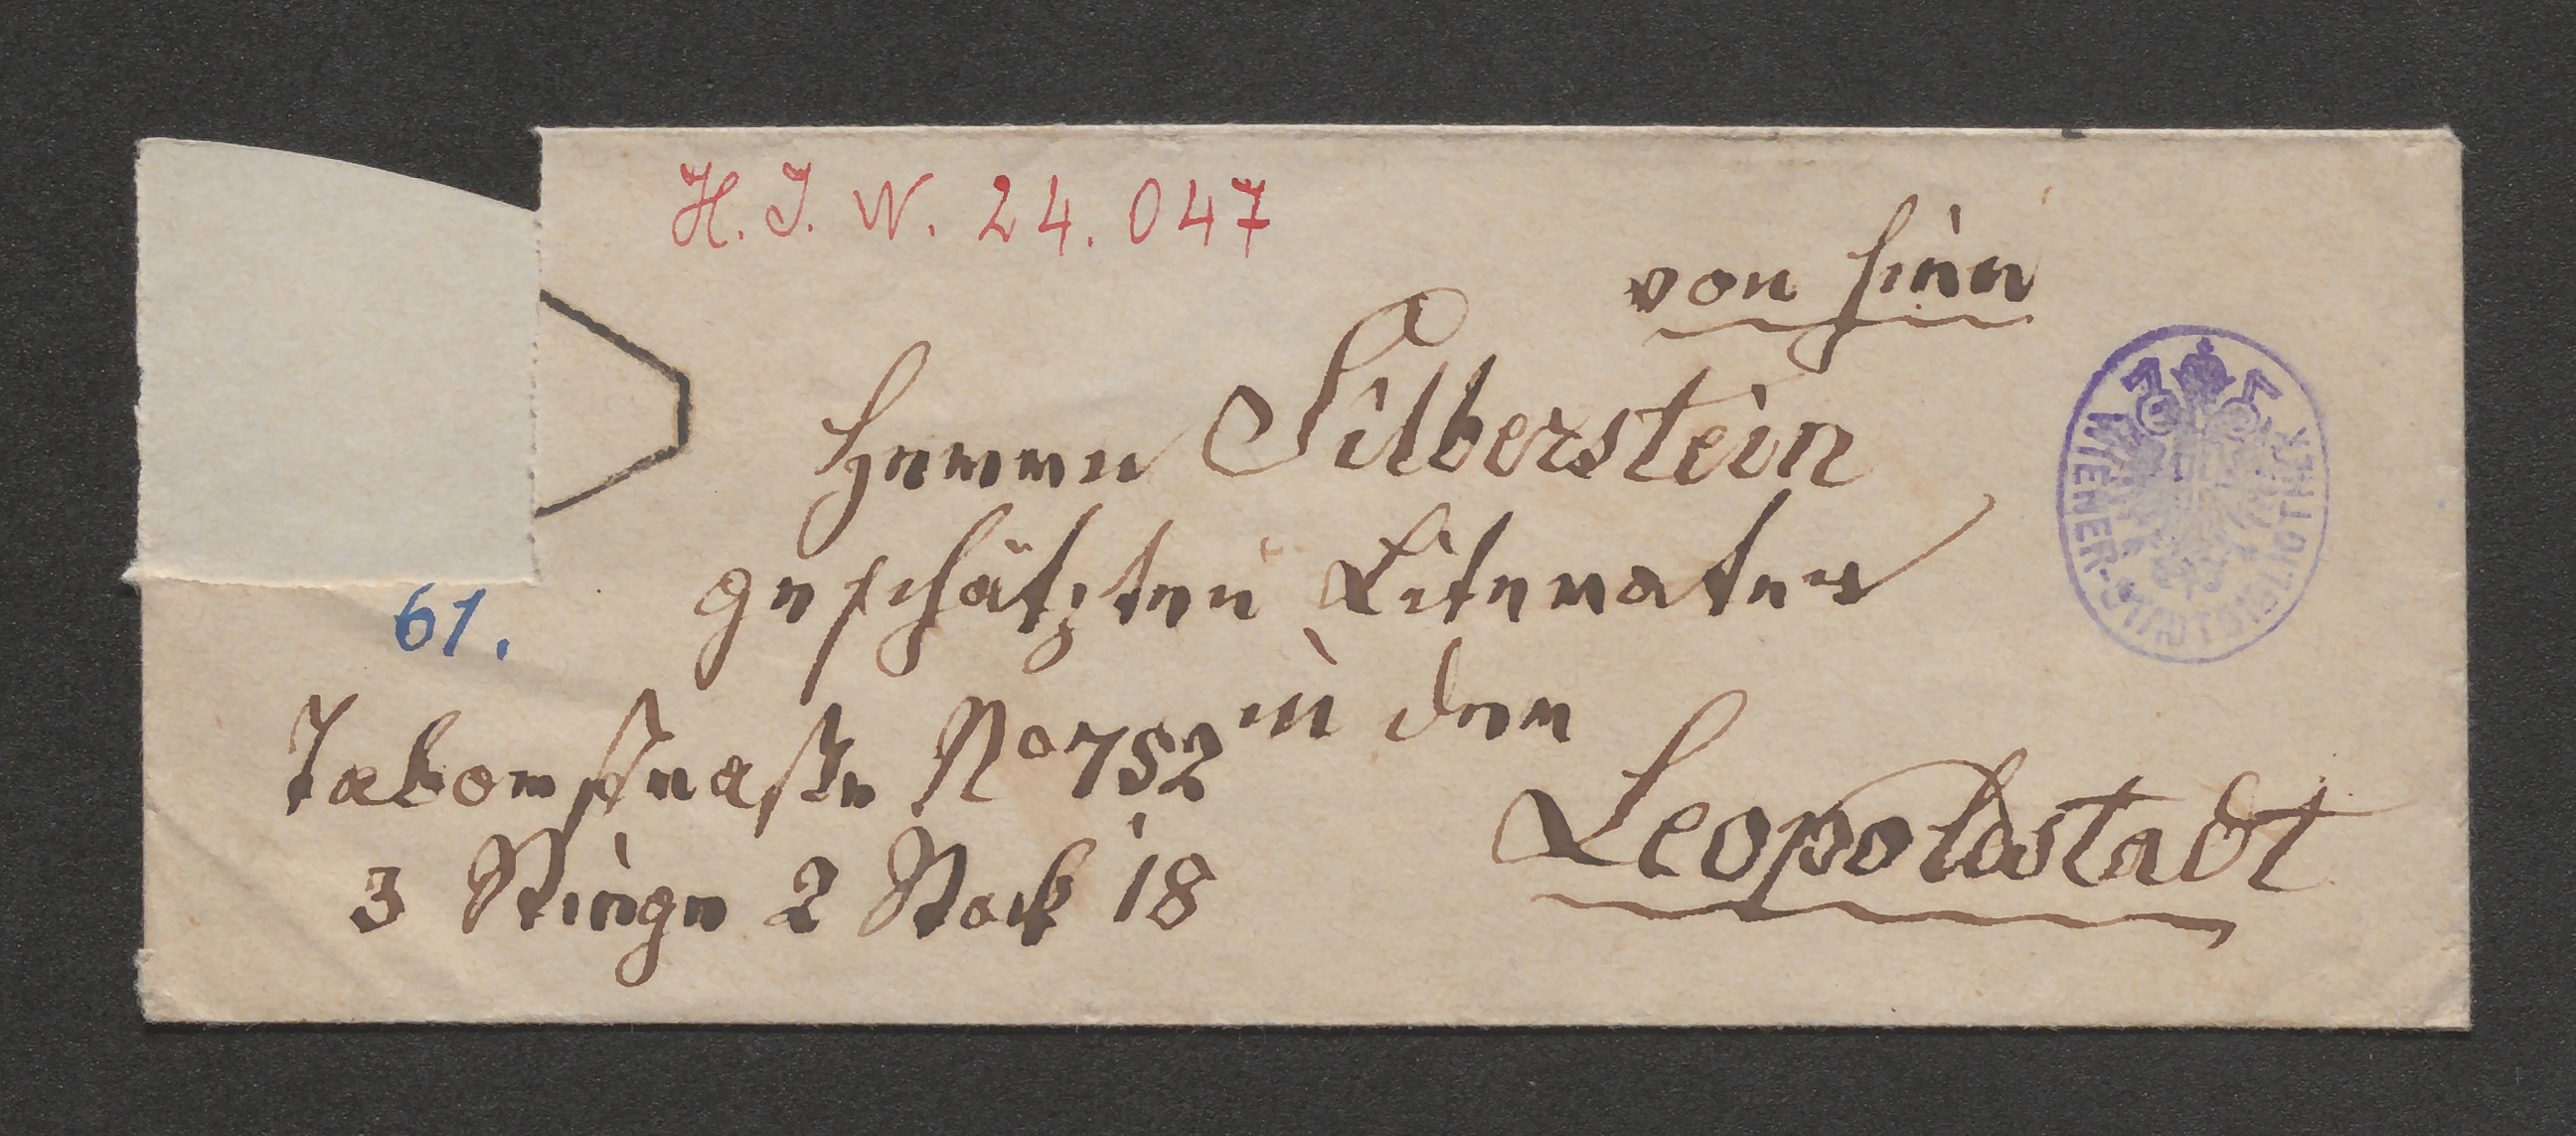 H. I. N. 24.047
von hier
Herrn Silberstein
geschätzten Literaten
61.
in der
Taborstraße No 752
Leopoldstadt
3 Stiege 2 Stock 18
WIENER-STADTBIBLIOTHEK